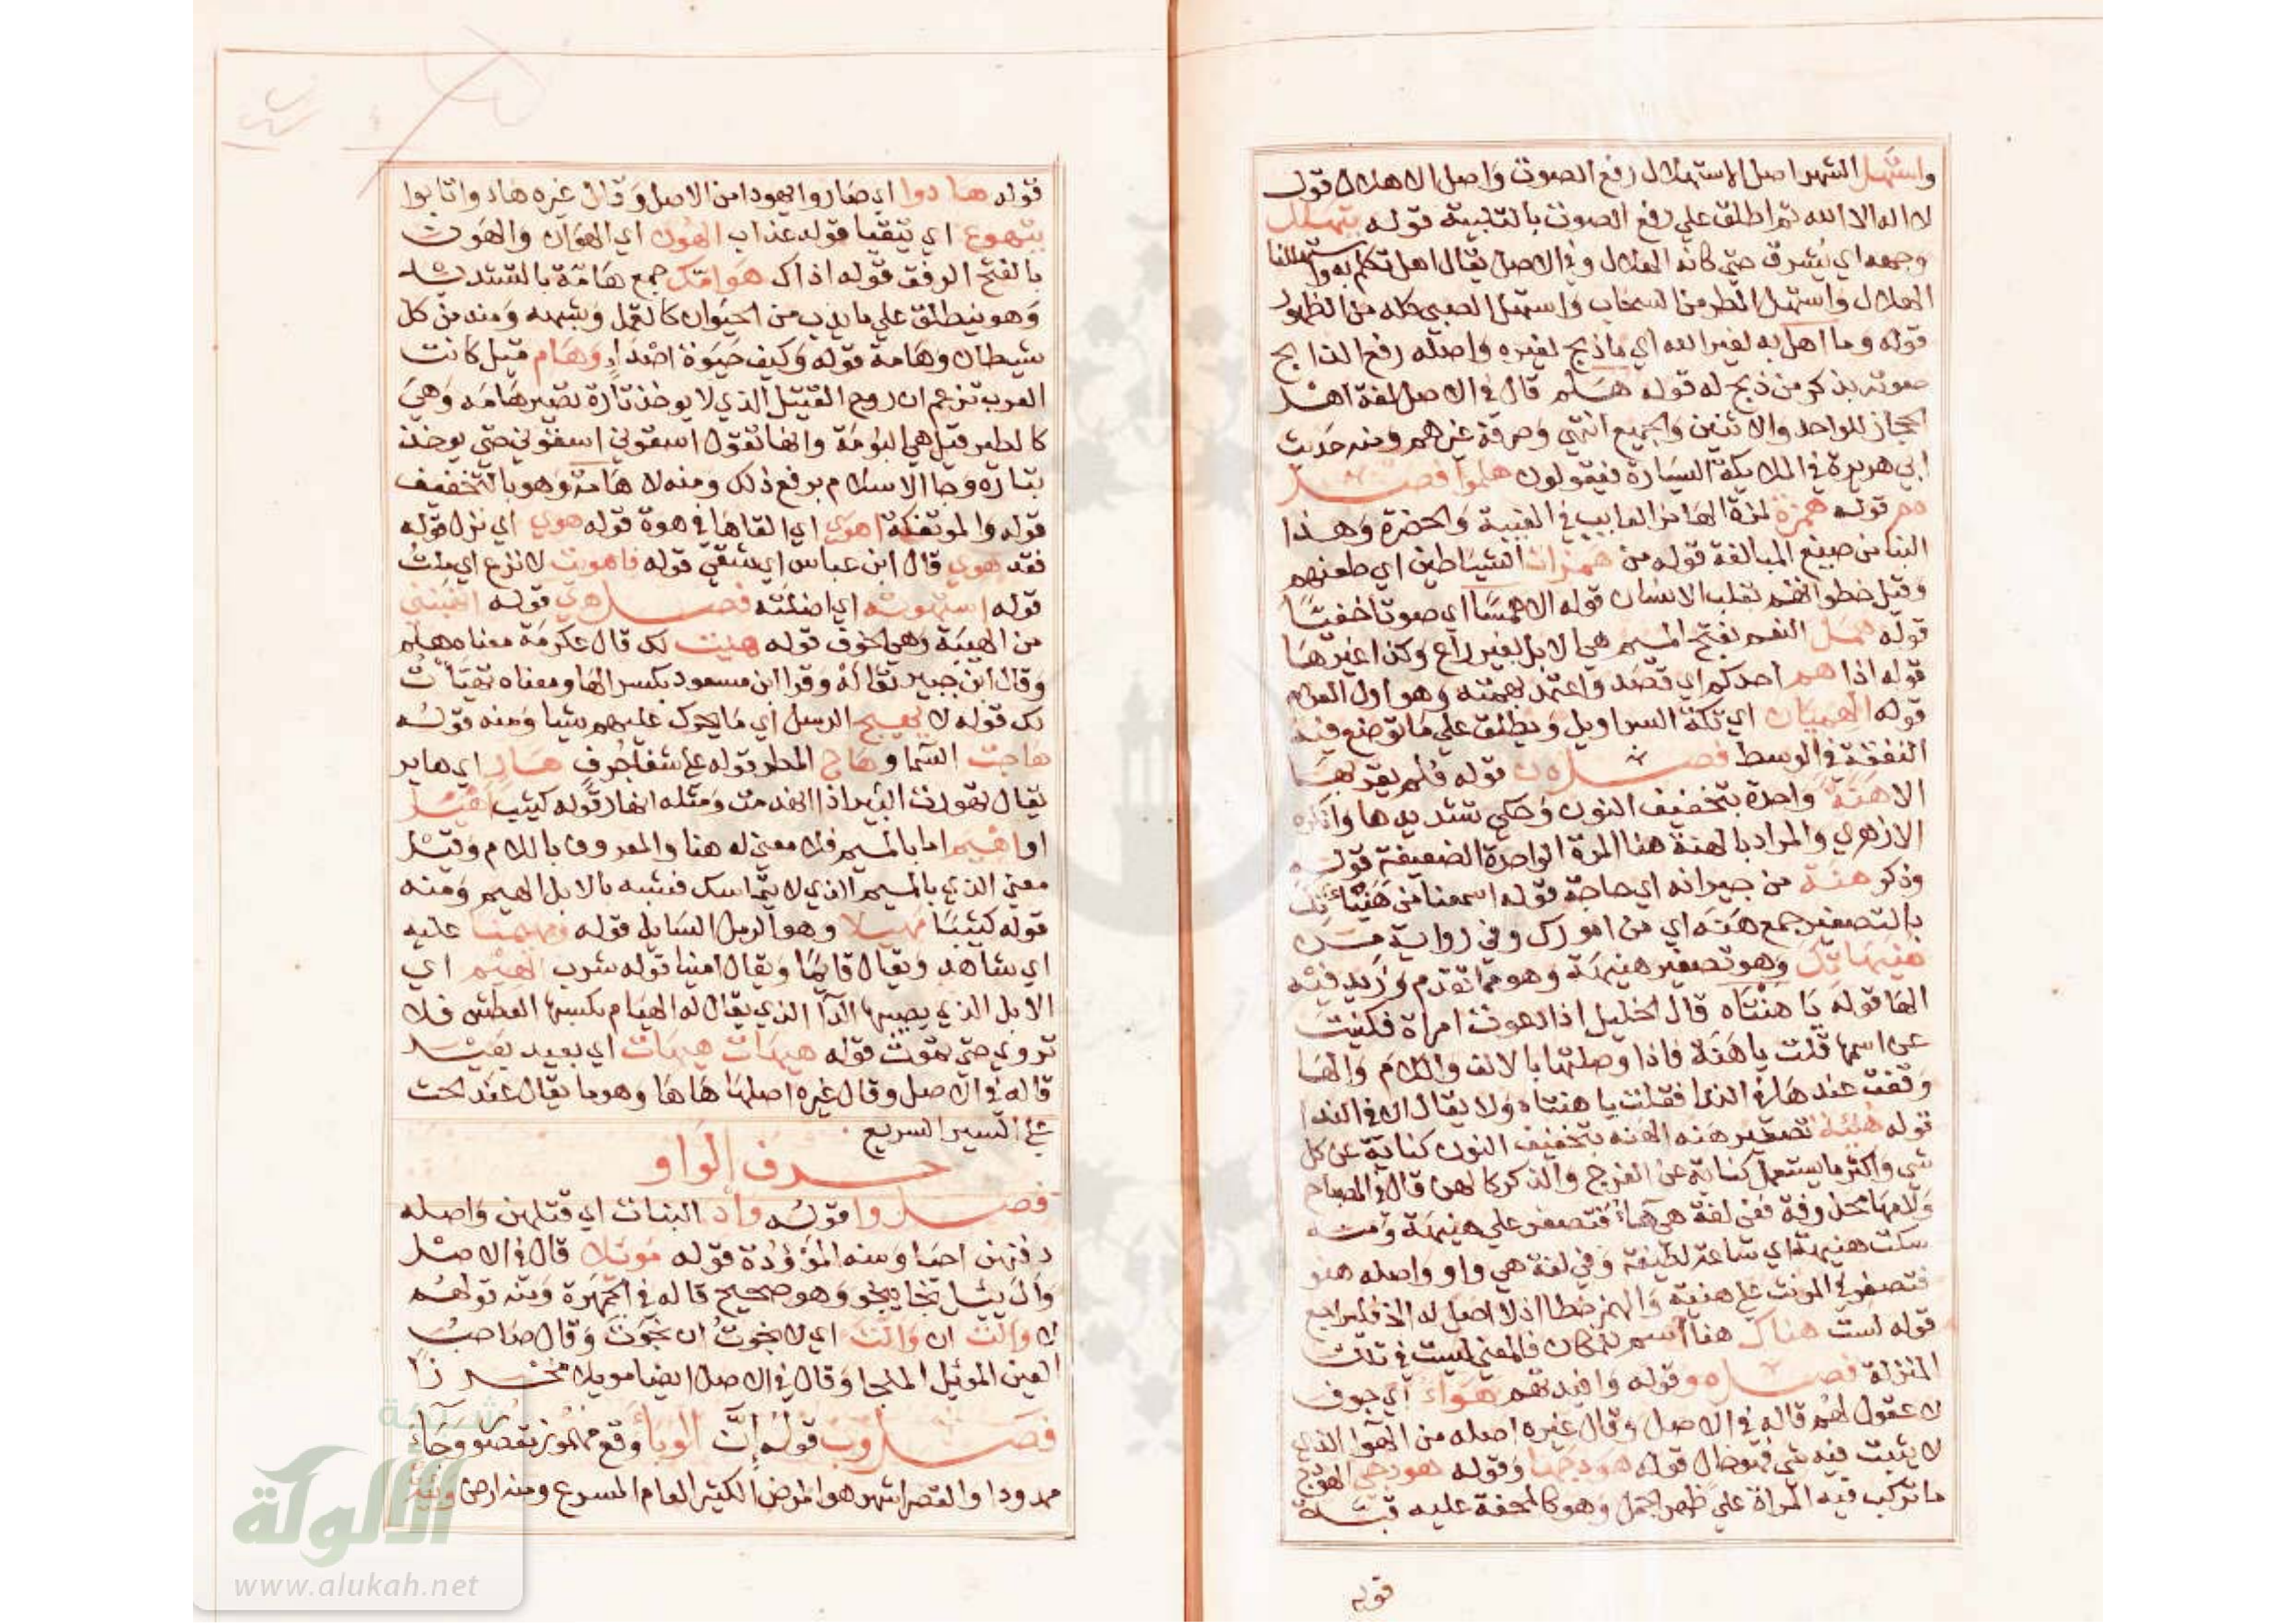 واستهل الشهر اصل الاستهلال رفع الصوت وَاصل الاهلال قول
لا اله الا الله ثم اطلق علي رفع الصوت بالتلبية قوله يتهلل
وجهه اي يُشرق حتي كانه الهلال وفي الاصل يقال اهل تكلم به واستهللنا
الهلال واستهل المطر من السحاب وَاستهل الصبي كله من الظهور
قوله وما اهل به لغير الله اي ما ذبح لغيره وَاصله رفع الذابح
صوته بذكر من ذبح له قوله هَلم قال في الاصل لغة اهل
الحجاز للواحد والاثنين وَالجميع انتهي وَصرفه غيرهم ومنه حديث
ابي هريرة في الملايكة السيارة فيقولون هلموا فصل
هم قوله همزة لمزة الهامز العايب في الغيبة وَالحضرة وَهذا
البنا من صيغ المبالغة قوله من همزات الشيَاطين اي طعنهم
وقيل خطراتهم بقلب الانسان قوله الا همسًا اي صوتا خفيًا
قوله همل النعم بفتح الميم هي الابل بغير راع وكذا غيرها
قوله اذا هم احدكم اي قصَد وَاعتمد بهمته وَهو اول العزم
قوله الهميَان اي تكة السراويل وَيطلق علي ما توضع فيه
النفقة في الوسط فصل ه ن قوله فلم يقربها
الا هنة وَاحدة بتخفيف النون وَحكي تشديدها وَانكره
الازهري والمراد بالهنة هنا المرة الواحدة الضعيفة قوله
وذكر هنة من جيرانه اي حاجة قوله اسمعنا من هُنيَّاتك
بالتصغير جمع هَنَه اي من امورك وفي رواية من
هنيهاتك وَهو تصغير هنيهَة وَهو مما تقدم وَزيد فيه
الها قوله يا هنتَاه قال الخليل اذا دعوت امراة فكنيت
عن اسمها قلت يا هَنَة فاذا وصلتها بالالف وَاللام وَالهَا
وَقفت عند ها في الندا فقلت يا هنتاه وَلا يقال الا في الندا
قوله هُنيَّة تصغير هنه الهنه بتخفيف النون كناية عن كل
شي وَاكثر ما يستعمل كناية عن الفرج وَالذكر كالهن قال في المصباح
وَلامها محذوفة ففي لغة هي هآءُ فتصغر علي هنيهَة وَمنه
سكت هنيهة اي ساعة لطيفة وَفي لغة هي واو واصله هنو
فتصغر في المونث علي هنية وَالهمز خطا اذ لا اصل له الخ فليراجع
قوله لست هناك هنا اسم للمكان فالمعني ليست في تلك
المنزلة فصل ه و قوله وَافيدتهم هَوَاءُ اي جوف
لا عقول لهم قاله في الاصل وقال غيره اصله من الهوآ الذي
لا يثبت فيه شي فهو خال قوله هودجها وَقوله هودجي الهودج
ما تركب فيه المراة علي ظهر الجمل وَهو كالمحفة عليه قبة
قوله
قوله هادوا اي صَاروا يهودا من الاصل وَقال غيره هادوا تابوا
يتهوع اي يتقيا قوله عذاب الهُون اي الهَوان وَالهَون
بالفتح الرفق قوله اذاك هَوامّك جمع هَامّة بالتشديد
وَهو ينطلق علي ما يدب من الحيوان كالقمل وَشبهه وَمنه من كل
شيطان وهَامة قوله وَكيف حَيَوة اصْدَاءٍ وَهَام قيل كانت
العرب تزعم ان روح القتيل الذي لا يوخذ تَارة تصير هَامَه وَهي
كالطير قيل هي البُومَة وانها تقول اسقوني اسقوني حتي يوخذ
بتاره وَجا الاسلام برفع ذلك ومنه لا هَامة وَهو بالتخفيف
قوله والموتفكة اهوي اي القاهَا في هوة قوله هوي اي نزل قوله
فقد هوي قال ابن عباس اي شقي قوله فاهويت لانزع اي ملتُ
قوله استهوته اي اضلته فصل هي قوله اتهبنني
من الهيبَة وَهي الخوف قوله هيت لك قال عكرمَة معناه هلم
وَقال ابن جبير تعَالَهْ وَقرا ابن مسعود بكسر الها ومعناه تهيَأتُ
لك قوله لا يهيج الرسل اي مَا يحرك عليهم شيا وَمنه قولُه
هاجت السَّما وهَاج المطر قوله علي شفا جُرفٍ هَارٍ اي هاير
يقال تهورت البير اذا انهدمت وَمثله انهار قوله كثيب اهيل
او اهيم اما بالميم فلا معني له هنا والمعروف باللام وَقيل
معني الذي بالميم الذي لا يتماسك فشبه بالابل الهيم وَمنه
قوله كثيبًا مهيلا وهو الرمل السَايل قوله ومهيمنا عليه
اي شاهد وَيقال قايمًا وَيقال امينا قوله شرب الهِيْم اي
الابل الذي يصيبها الدآ الذي يقال له الهيَام يكسبها العطش فلا
تروي حتي تموت قوله هيهَات هيهَات اي بعيد بعيد
قاله في الاصل وقال غيره اصلها هَا هَا وَهو ما يقال عند الحث
علي السير السريع
حرف الوَاو
فصل وا قولُه وَاْد البنات اي قتلهن وَاصله
دفنهن احيا وَمنه المؤوُدة قوله مَوئلا قال في الاصل
وَأل يئل نجا ينجو وَهو صحيح قاله في الجمهَرة وَمنه قولهُم
لا وألت ان وَألَتْ اي لا نجوتُ ان نجَوَتَ وَقال صَاحبُ
العين الموئيل الملجا وَقال في الاصل ايضا مويلا محْرزًا
فصل وب قولُه اِنَّ الوبَأ وَقع مهموز بقصر وَجَاءَ
ممدودا والقصر اشهر هو المرض الكثير العام المسرع ومنه ارض وَبئة
شبكة
الألوكة
www.alukah.net